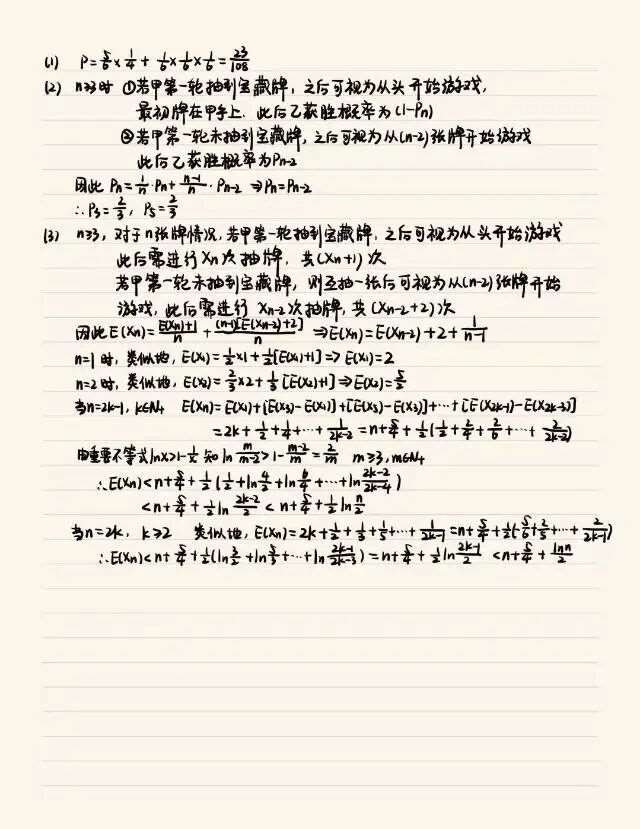 (1) P=5/6×1/4+1/6×1/6×1/6=23/108
(2) n≥3时 ①若甲第一轮抽到宝藏牌,之后可视为从头开始游戏,
最初牌在甲手上,此后乙获胜概率为(1-Pn)
②若甲第一轮未抽到宝藏牌,之后可视为从(n-2)张牌开始游戏
此后乙获胜概率为Pn-2
因此 Pn=1/n·Pn+(n-1)/n·Pn-2 ⇒Pn=Pn-2
∴P3=2/3, P5=2/3
(3) n≥3,对于n张牌情况,若甲第一轮抽到宝藏牌,之后可视为从头开始游戏
此后需进行Xn次抽牌,共(Xn+1)次
若甲第一轮未抽到宝藏牌,则互抽一张后可视为从(n-2)张牌开始
游戏,此后需进行 Xn-2次抽牌,共(Xn-2+2)次
因此E(Xn)=(E(Xn)+1)/n+((n-1)[E(Xn-2)+2])/n ⇒E(Xn)=E(Xn-2)+2+1/(n-1)
n=1时,类似地,E(X1)=1/2×1+1/2[E(X1)+1]⇒E(X1)=2
n=2时,类似地,E(X2)=2/3×2+1/3[E(X2)+1]⇒E(X2)=5/2
当n=2k-1,k∈N+ E(Xn)=E(X1)+[E(X3)-E(X1)]+[E(X5)-E(X3)]+…+[E(X2k-1)-E(X2k-3)]
=2k+1/2+1/4+…+1/(2k-2)=n+5/4+1/2(1/2+2/4+2/6+…+2/(2k-2))
由重要不等式lnx>1-1/x 知ln m/(m-2)>1-(m-2)/m=2/m m≥3,m∈N+
∴E(Xn)<n+5/4+1/2(1/2+ln4/2+ln6/4+…+ln(2k-2)/(2k-4))
<n+5/4+1/2ln(2k-2)/2<n+5/4+1/2ln n/2
当n=2k,k≥2 类似地,E(Xn)=2k+1/2+1/3+1/5+…+1/(2k-1)=n+5/4+1/2(5/6+2/5+…+2/(2k-1))
∴E(Xn)<n+5/4+1/2(ln3/2+ln5/3+…+ln(2k-1)/(2k-3))=n+5/4+1/2ln(2k-1)/2<n+5/4+lnn/2